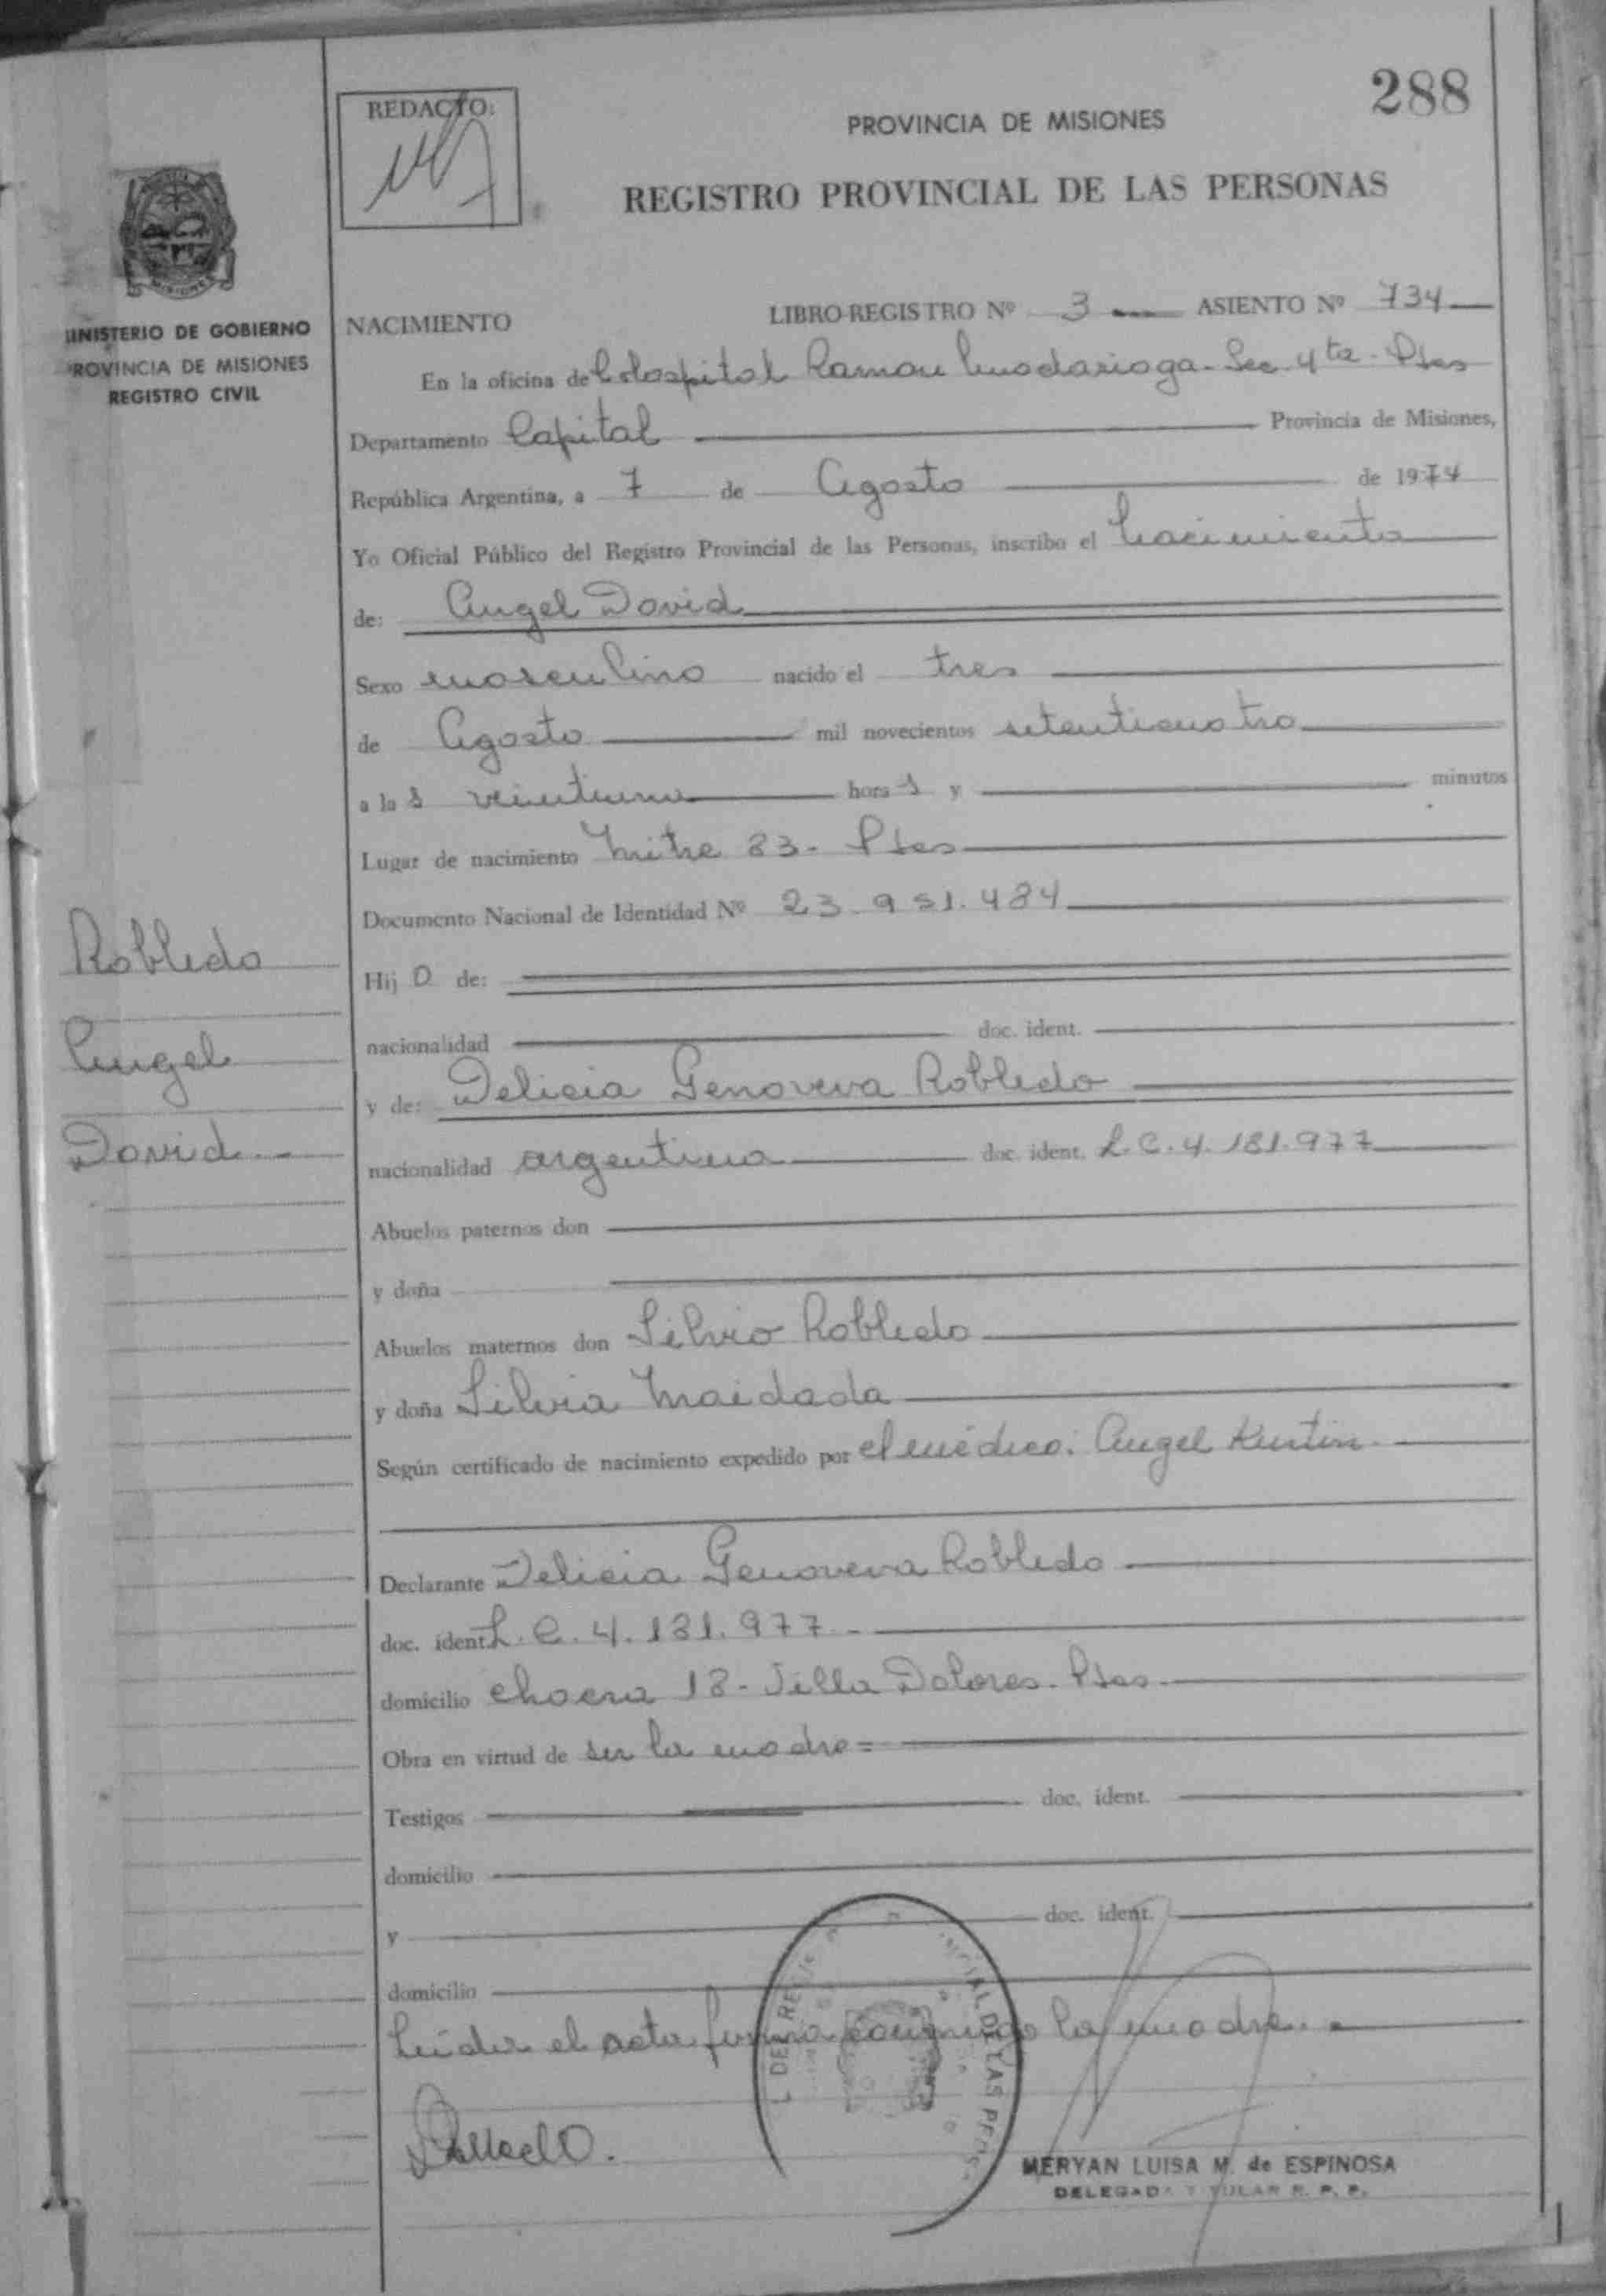 288
REDACTO:
PROVINCIA DE MISIONES
REGISTRO PROVINCIAL DE LAS PERSONAS
MINISTERIO DE GOBIERNO
PROVINCIA DE MISIONES
REGISTRO CIVIL
NACIMIENTO LIBRO-REGISTRO Nº 3 ASIENTO Nº 734
En la oficina de Hospital Ramon Madariaga - Sec. 4ta - Pdas
Departamento Capital Provincia de Misiones,
República Argentina, a 7 de Agosto de 1974
Yo Oficial Público del Registro Provincial de las Personas, inscribo el nacimiento
de: Angel David
Sexo masculino nacido el tres
de Agosto mil novecientos setenticuatro
a las veintiuna horas y minutos
Lugar de nacimiento Mitre 83 - Pdas
Documento Nacional de Identidad Nº 23.951.484
Hijo de:
nacionalidad doc. ident.
y de: Delicia Genoveva Robledo
nacionalidad argentina doc. ident. L.C. 4.181.977
Abuelos paternos don
y doña
Abuelos maternos don Silvio Robledo
y doña Silvia Maidada
Según certificado de nacimiento expedido por el médico: Angel
Declarante Delicia Genoveva Robledo
doc. ident. L.C. 4.181.977
domicilio chacra 18 - Villa Dolores - Pdas
Obra en virtud de ser la madre =
Testigos doc. ident.
domicilio
y doc. ident.
domicilio
Leida el acta firma conmigo la madre.
Robledo
Angel
David
MERYAN LUISA M. de ESPINOSA
DELEGADA TITULAR R. P. P.